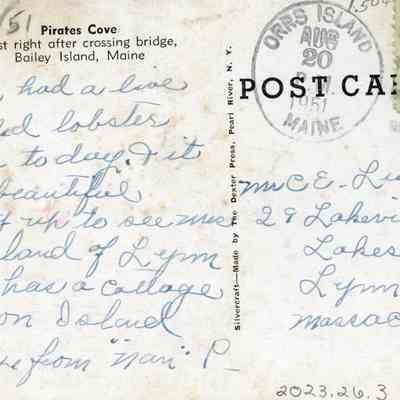 51
Pirates Cove
st right after crossing bridge,
Bailey Island, Maine
had a live
ed lobster
to day. & it
beautiful
up to see Mrs
land of Lynn
has a cottage
on Island
from "Nan" P
Silvercraft—Made by The Dexter Press, Pearl River, N. Y.
ORRS ISLAND
AUG
20
1951
MAINE
POST CA
Mr C E. Lu
29 Lakevi
Lakes
Lynn
Massac
2023.26.3